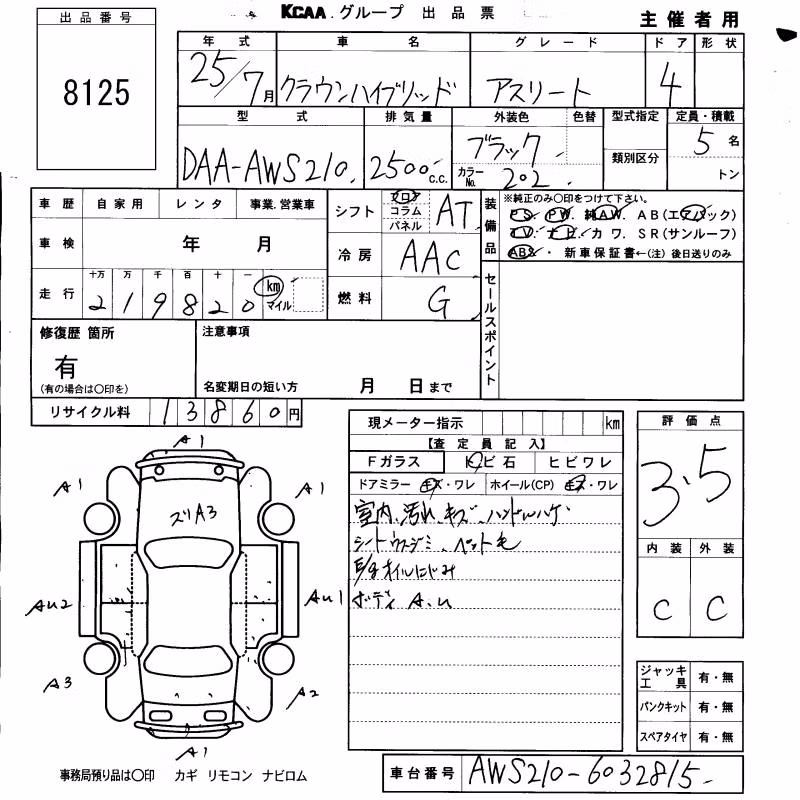 KCAA グループ 出品票
主催者用
出品番号
8125
年式 車名 グレード ドア 形状
25/7月 クラウンハイブリッド アスリート 4
型式 排気量 外装色 色替 型式指定 定員・積載
DAA-AWS210 2500c.c. ブラック 5名
カラーNo. 202 類別区分 トン
車歴 自家用 レンタ 事業.営業車
シフト フロア コラム パネル AT
装備品
※純正のみ〇印をつけて下さい。
PS. PW. 純AW. AB(エアバック)
TV. ナビ. カワ. SR(サンルーフ)
ABS. 新車保証書←(注)後日送りのみ
車検 年 月
冷房 AAC
走行 十万 万 千 百 十 一 km マイル
2 1 9 8 2 0
燃料 G
セールスポイント
修復歴 箇所
有
(有の場合は〇印を)
注意事項
名変期日の短い方 月 日まで
リサイクル料 13860円
現メーター指示 km
【査定員記入】
Fガラス トビ石 ヒビワレ
ドアミラー キズ・ワレ ホイール(CP) キズ・ワレ
室内、汚れ、キズ、ハンドルハゲ
シートウスジミ、ペット毛
E/g オイルにじみ
ボディ A.U
評価点
3.5
内装 外装
C C
A1
A1 A1
ズリA3
AU2 AU1
A3 A2
A1
ジャッキ工具 有・無
パンクキット 有・無
スペアタイヤ 有・無
事務局預り品は〇印 カギ リモコン ナビロム
車台番号 AWS210-6032815